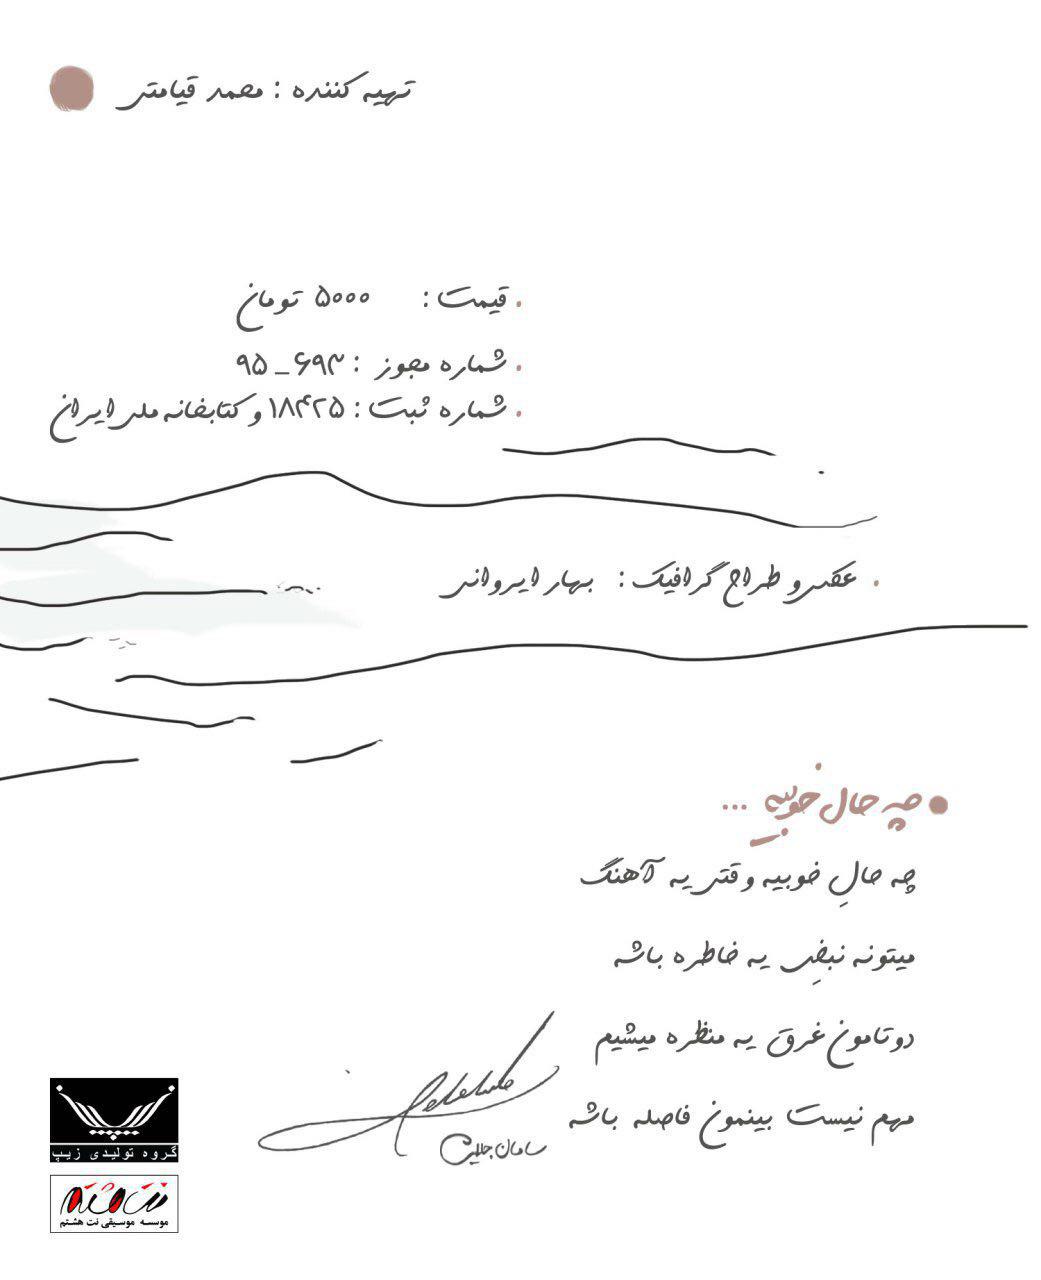 تهیه کننده : محمد قیامتی
قیمت : ۵۰۰۰ تومان
شماره مجوز : ۶۹۳_۹۵
شماره ثبت : ۱۸۴۲۵ و کتابخانه ملی ایران
عکس و طراح گرافیک : بهار ایروانی
چه حال خوبیه ...
چه حالِ خوبیه وقتی یه آهنگ
میتونه نبضِ یه خاطره باشه
دوتامون غرق یه منظره میشیم
مهم نیست بینمون فاصله باشه
سامان جلیلی
گروه تولیدی زیپ
نت هشتم
موسسه موسیقی نت هشتم